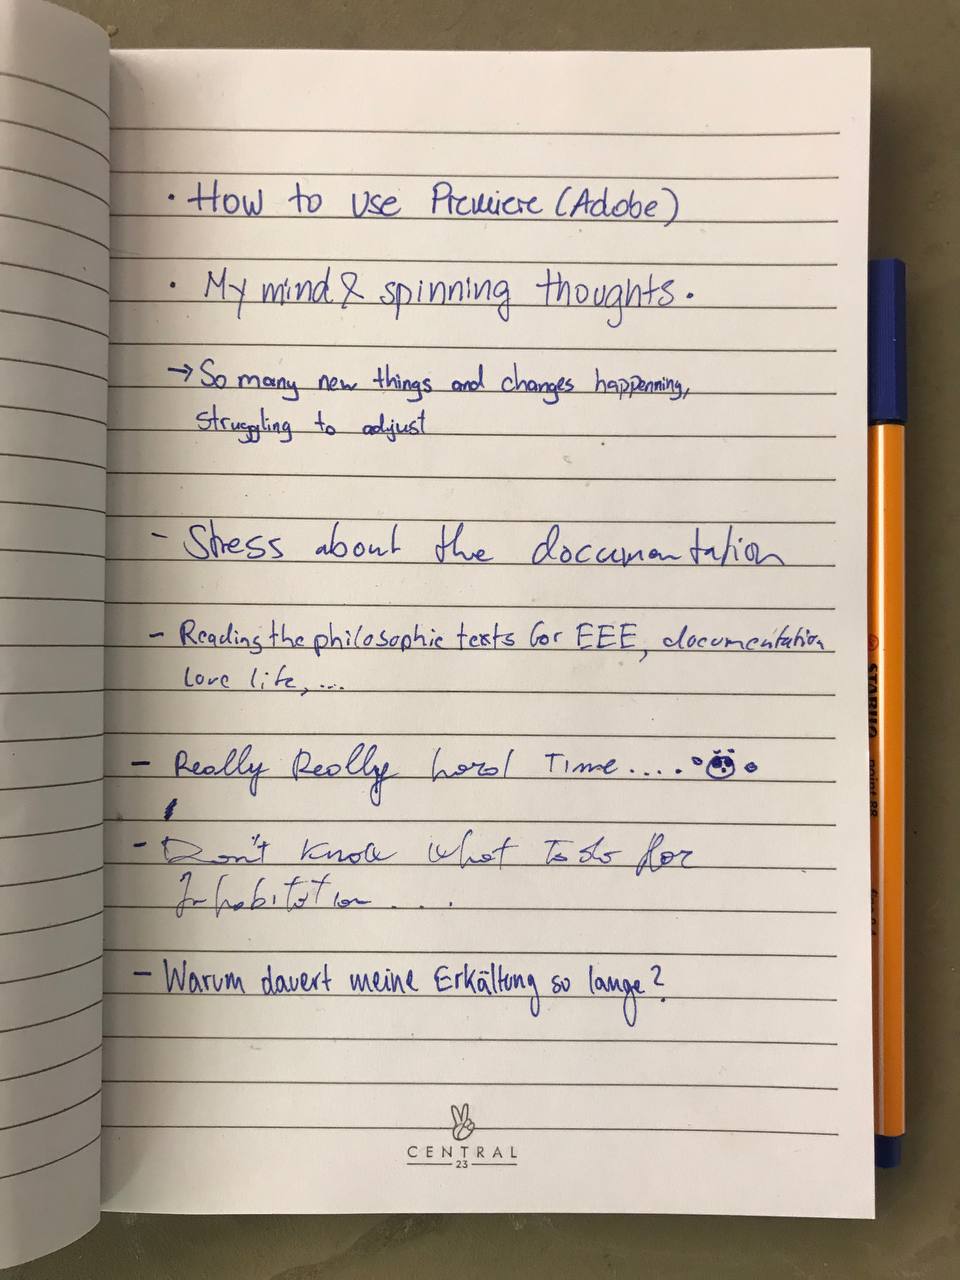 · How to use Premiere (Adobe)
· My mind & spinning thoughts.
→ So many new things and changes happenning,
struggling to adjust
- Stress about the documentation
- Reading the philosophic texts for EEE, documentation
love life, ...
- Really Really hard Time....
- Don't know what to do for
Inhabitation....
- Warum dauert meine Erkältung so lange?
CENTRAL
23
STABILO
point 88